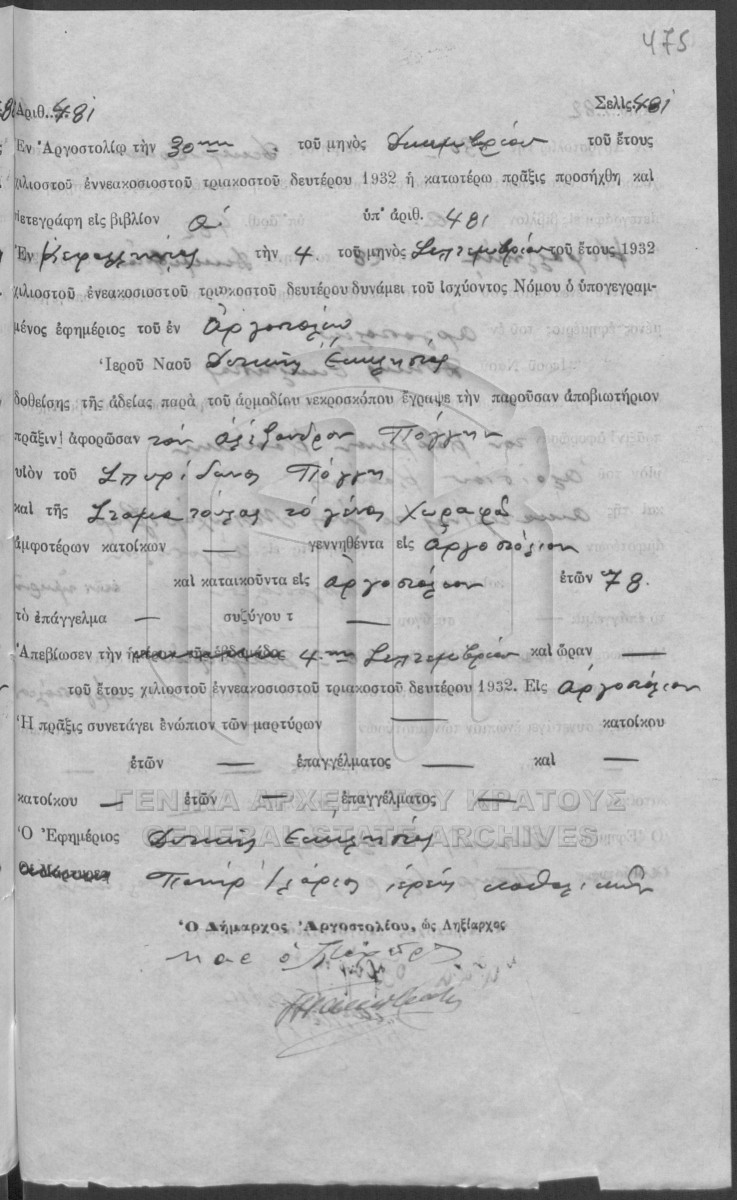 475
Ἀριθ. 481 Σελίς 481
Ἐν Ἀργοστολίῳ τὴν 30ην τοῦ μηνὸς Δεκεμβρίου τοῦ ἔτους
χιλιοστοῦ ἐννεακοσιοστοῦ τριακοστοῦ δευτέρου 1932 ἡ κατωτέρω πρᾶξις προσήχθη καὶ
μετεγράφη εἰς βιβλίον α΄ ὑπ᾽ ἀριθ. 481
Ἐν Κεφαλληνίᾳ τὴν 4 τοῦ μηνὸς Σεπτεμβρίου τοῦ ἔτους 1932
χιλιοστοῦ ἐνεακοσιοστοῦ τριακοστοῦ δευτέρου δυνάμει τοῦ ἰσχύοντος Νόμου ὁ ὑπογεγραμ-
μένος ἐφημέριος τοῦ ἐν Ἀργοστολίῳ
Ἱεροῦ Ναοῦ Δυτικῆς Ἐκκλησίας
δοθείσης τῆς ἀδείας παρὰ τοῦ ἁρμοδίου νεκροσκόπου ἔγραψε τὴν παροῦσαν ἀποβιωτήριον
πρᾶξιν ἀφορῶσαν τὸν Ἀλέξανδρον Πόγγην
υἱὸν τοῦ Σπυρίδωνος Πόγγη
καὶ τῆς Σταματούλας τὸ γένος Χωραφᾶ
ἀμφοτέρων κατοίκων — γεννηθέντα εἰς Ἀργοστόλιον
καὶ καταικοῦντα εἰς Ἀργοστόλιον ἐτῶν 78.
τὸ ἐπάγγελμα — συζύγου τ —
Ἀπεβίωσεν τὴν 4ην Σεπτεμβρίου καὶ ὥραν —
τοῦ ἔτους χιλιοστοῦ ἐννεακοσιοστοῦ τριακοστοῦ δευτέρου 1932. Εἰς Ἀργοστόλιον
Ἡ πρᾶξις συνετάγει ἐνώπιον τῶν μαρτύρων — κατοίκου
ἐτῶν — ἐπαγγέλματος — καὶ —
κατοίκου — ἐτῶν — ἐπαγγέλματος —
ΓΕΝΙΚΑ ΑΡΧΕΙΑ ΤΟΥ ΚΡΑΤΟΥΣ
GENERAL STATE ARCHIVES
Ὁ Ἐφημέριος Δυτικῆς Ἐκκλησίας
Οἱ Μάρτυρες Πατὴρ Ἱλάριος ἱερεὺς καθολικῶν
Ὁ Δήμαρχος Ἀργοστολίου, ὡς Ληξίαρχος